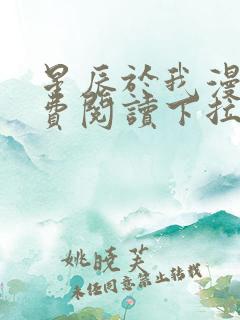 星辰於我漫
費閱讀下拉
姚曉芙
未经同意禁止转载